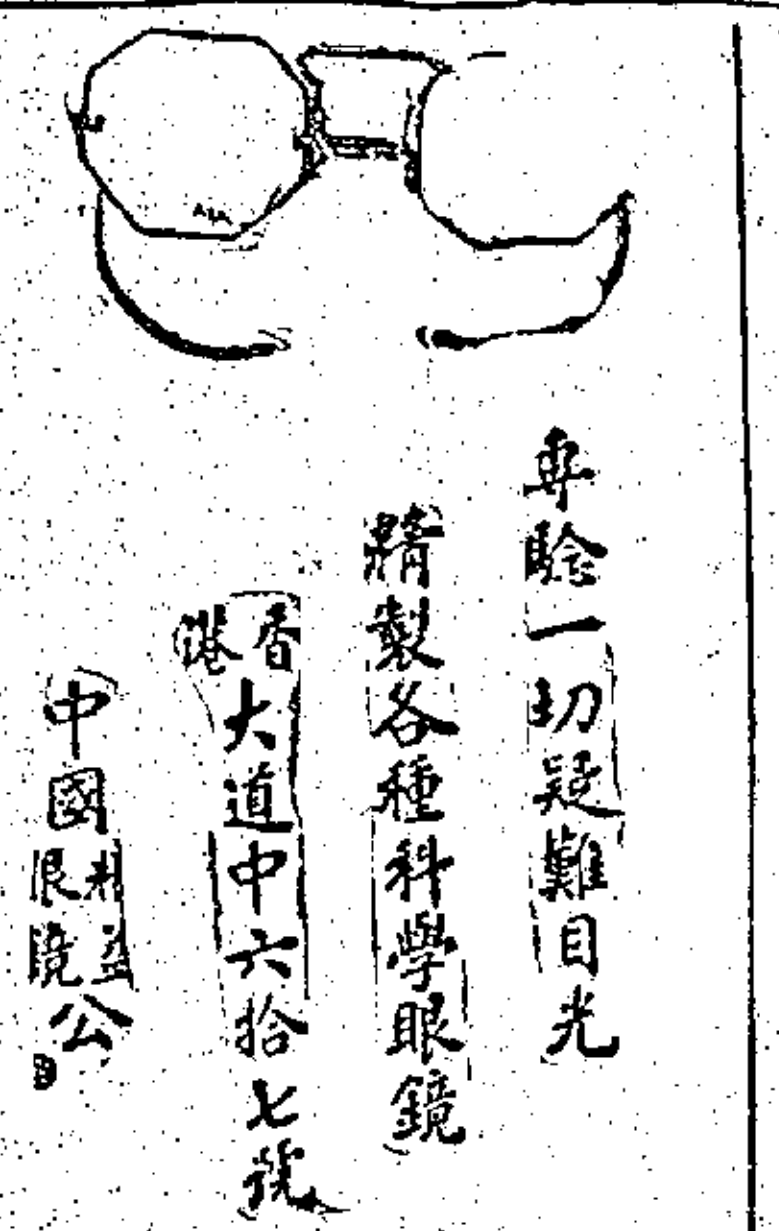 專驗一切疑難目光
精製各種科學眼鏡
香港大道中六拾七號
中國精益眼鏡公